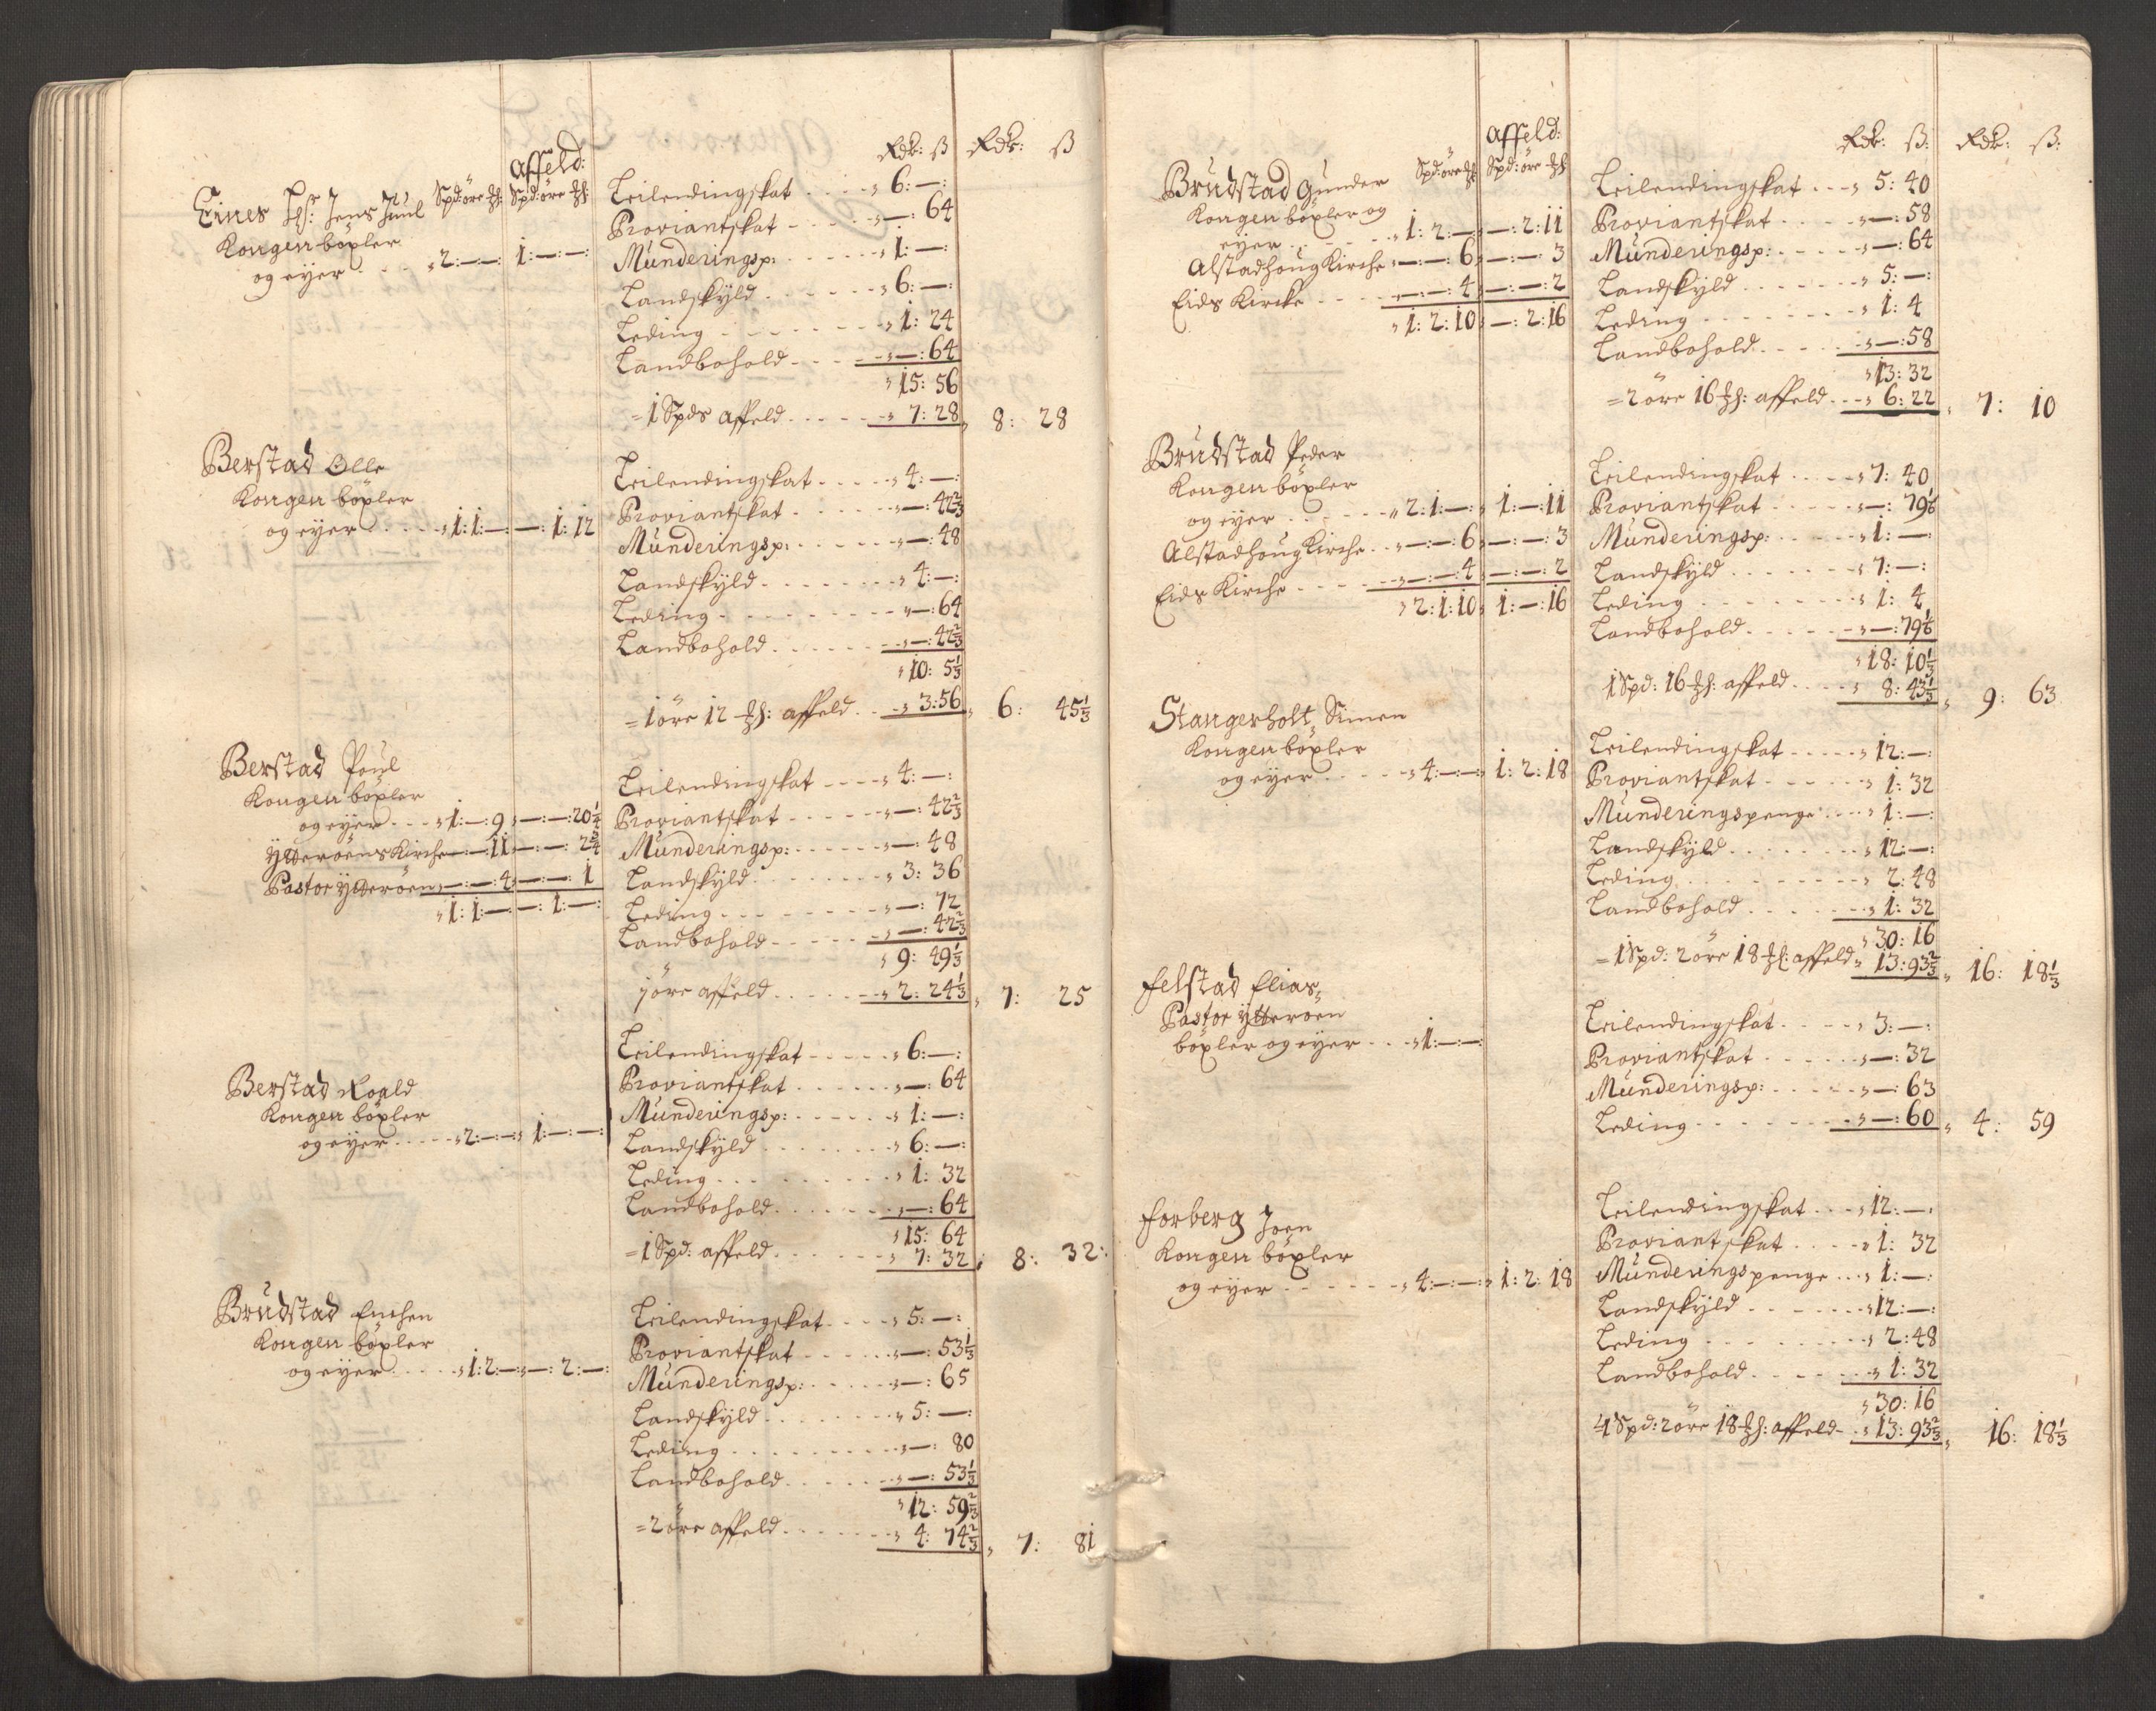 Affeld: Rdr: ß Rdr: ß
Spd: öre Spd: öre
Eines Jens Juul
Kongen böxler
og eyer .... 2:—:— 1:—:—:
Leilendingskat .... 6:—:
Proviantskat ..... —: 64
Munderingsp: ..... 1:—:
Landskyld ...... 6:—:
Leding ....... 1: 24
Landbohold .... —: 64
15: 56
= 1 Spds affeld ..... 7: 28 8: 28
Berstad Olle
Kongen böxler
og eyer .... 1: 1:—: —: 1: 12
Leilendingskat ..... 4:—:
Proviantskat ...... —: 42 2/3
Munderingsp: ..... —: 48
Landskyld ....... 4:—:
Leding ....... —: 64
Landbohold ...... —: 42 2/3
10: 5 1/3
= 1 öre 12 affeld .. 3: 56 6: 45 1/3
Berstad Poul
Kongen böxler
og eyer ... 1:—: 9 —:—: 20 1/4
Ytteröens Kirche —:—: 11 —:—: 2 3/4
Pastor Ytteröen —:—: 4 —:—: 1
1: 1:— —: 1:—:
Leilendingskat .... 4:—:
Proviantskat ..... —: 42 2/3
Munderingsp: ..... —: 48
Landskyld ...... 3: 36
Leding ....... —: 72
Landbohold ..... —: 42 2/3
9: 49 1/3
1 öre affeld ...... 2: 24 1/3 7: 25
Berstad Roald
Kongen böxler
og eyer .... 2:—:— 1:—:—:
Leilendingskat ..... 6:—:
Proviantskat ...... —: 64
Munderingsp: ..... 1:—:
Landskyld ....... 6:—:
Leding ......... 1: 32
Landbohold ...... —: 64
15: 64
= 1 Spd: affeld ...... 7: 32 8: 32:
Brudstad Enchen
Kongen böxler
og eyer .... 1: 2:— —: 2:—:
Leilendingskat .... 5:—:
Proviantskat ..... —: 53 1/3
Munderingsp: ..... —: 65
Landskyld ....... 5:—:
Leding ........ —: 80
Landbohold ..... —: 53 1/3
12: 59 2/3
= 2 öre affeld ...... 4: 74 2/3 7: 81
Affeld: Rdr: ß: Rdr: ß:
Spd: öre Spd: öre
Brudstad Gunder
Kongen böxler og
eyer ...... 1: 2:— —: 2: 11
Alstadhoug Kirche —:—: 6 —:—: 3
Eids Kircke .... —:—: 4 —:—: 2
1: 2: 10 —: 2: 16
Leilendingskat ... 5: 40
Proviantskat .... —: 58
Munderingsp: .... —: 64
Landskyld ...... 5:—:
Leding ....... 1: 4
Landbohold .... —: 58
13: 32
= 2 öre 16 affeld ... 6: 22 7: 10
Brudstad Peder
Kongen böxler
og eyer ..... 2: 1:—: 1:—: 11
Alstadhoug Kirche .. —:—: 6 —:—: 3
Eids Kirche .... —:—: 4 —:—: 2
2: 1: 10 1:—: 16
Leilendingskat .... 7: 40
Proviantskat ..... —: 79 1/6
Munderingsp: ..... 1:—:
Landskyld ...... 7:—:
Leding ....... 1: 4
Landbohold ..... —: 79 1/6
18: 10 1/3
1 Spd: 16 affeld .... 8: 43 1/3 9: 63
Stangerholt Simen
Kongen böxler
og eyer ..... 4:—:— 1: 2: 18
Leilendingskat .... 12:—:
Proviantskat ..... 1: 32
Munderingspenge ... 1:—:
Landskyld ...... 12:—:
Leding ........ 2: 48
Landbohold ..... 1: 32
30: 16
= 1 Spd: 2 öre 18 affeld 13: 93 2/3 16: 18 1/3
Felstad Elias
Pastor Ytteroen
böxler og eyer ... 1:—:—:
Leilendingskat .... 3:—:
Proviantskat ..... —: 32
Munderingsp: .... —: 63
Leding ....... —: 60 4: 59
Forberg Joen
Kongen böxler
og eyer ...... 4:—:—: 1: 2: 18
Leilendingskat ... 12:—:
Proviantskat .... 1: 32
Munderingspenge ... 1:—:
Landskyld ...... 12:—:
Leding ....... 2: 48
Landbohold ..... 1: 32
30: 16
= 1 Spd: 2 öre 18 affeld .. 13: 93 2/3 16: 18 1/3